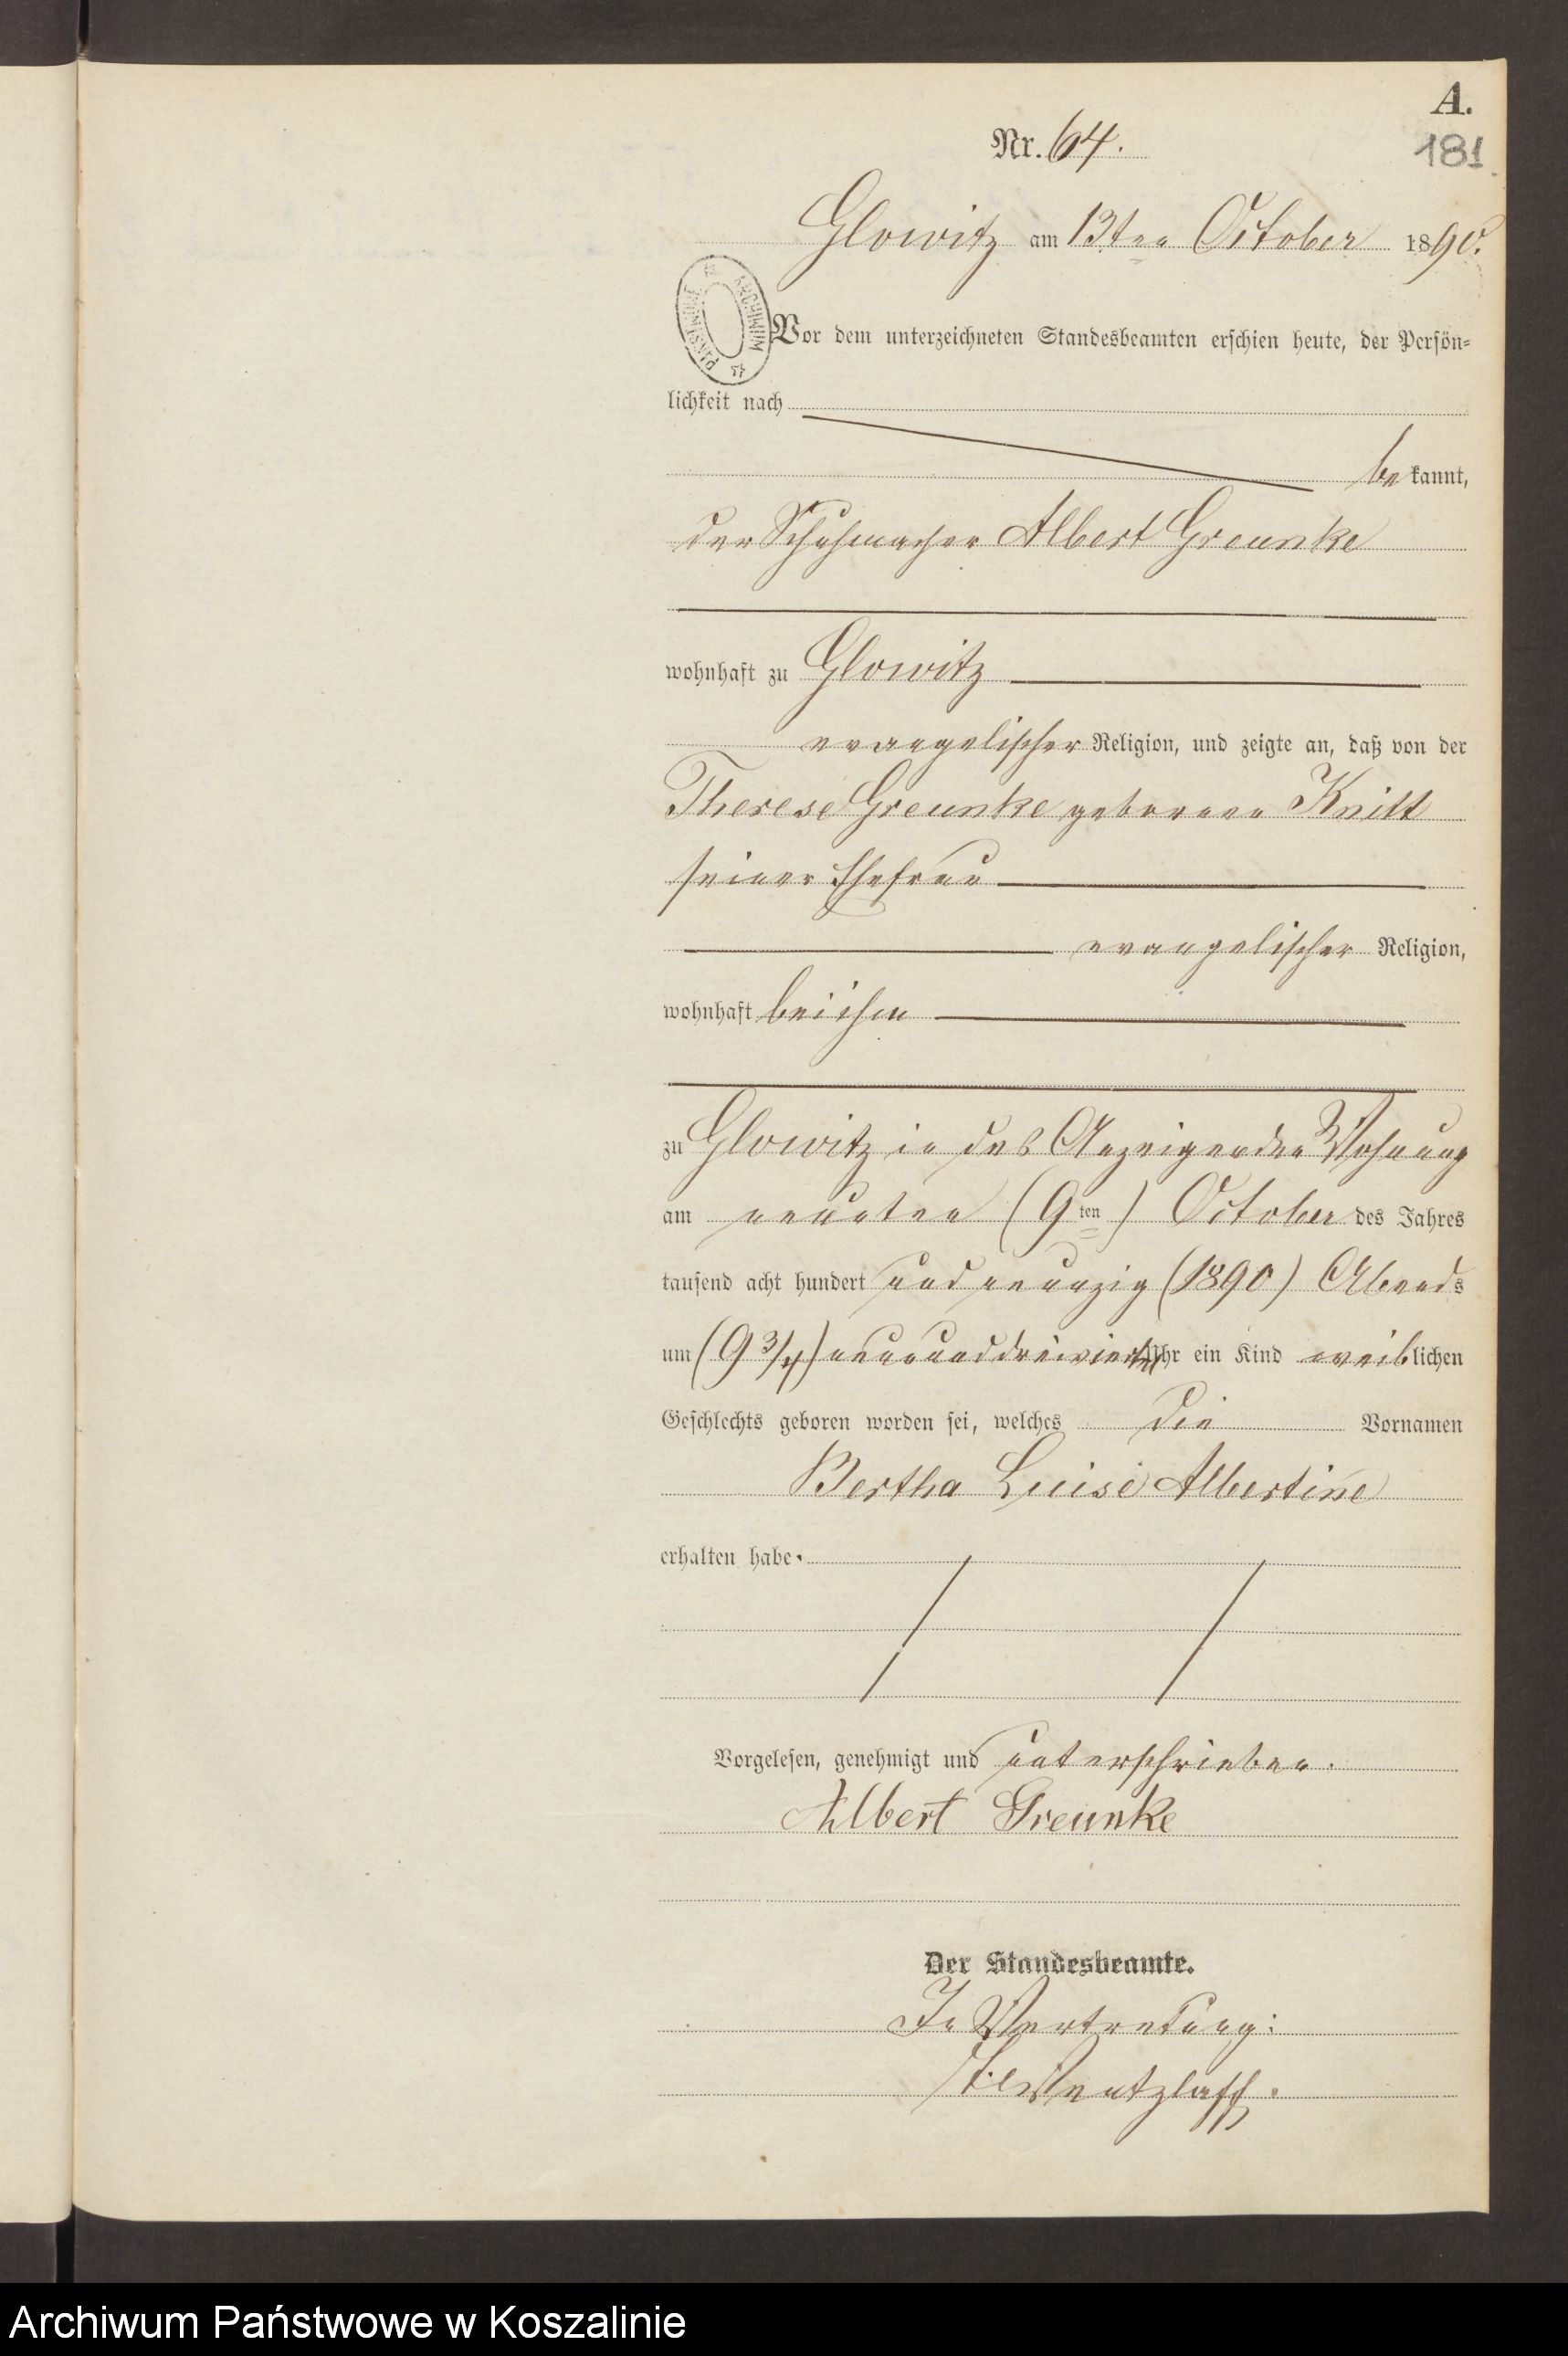 A.
Nr. 64.
181
Glowitz am 13ten October 1890.
Vor dem unterzeichneten Standesbeamten erschien heute, der Persön-
lichkeit nach
bekannt,
der Schuhmacher Albert Greunke
wohnhaft zu Glowitz
evangelischer Religion, und zeigte an, daß von der
Therese Greunke geborene Knitt
seiner Ehefrau
evangelischer Religion,
wohnhaft bei ihm
zu Glowitz in des Anzeigenden Wohnung
am neunten (9ten) October des Jahres
tausend acht hundert und neunzig (1890) Abends
um (9 3/4) neununddreiviertel Uhr ein Kind weiblichen
Geschlechts geboren worden sei, welches die Vornamen
Bertha Luise Albertine
erhalten habe.
Vorgelesen, genehmigt und unterschrieben.
Albert Greunke
Der Standesbeamte.
In Vertretung:
Wentzlaff.
ARCHIWUM PAŃSTWOWE
Archiwum Państwowe w Koszalinie